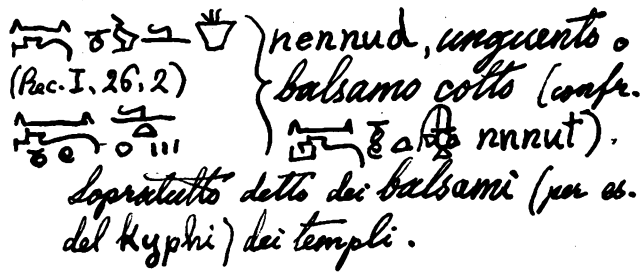 nennud, unguento o
(Rec. I, 26, 2) balsamo cotto (confr.
nnnut).
Sopratutto detto dei balsami (per es.
del Kyphi) dei templi.